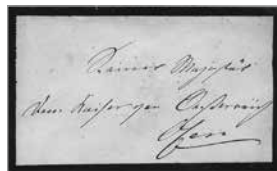 Seiner Majestät
dem Kaiser von Oesterreich
Ofen